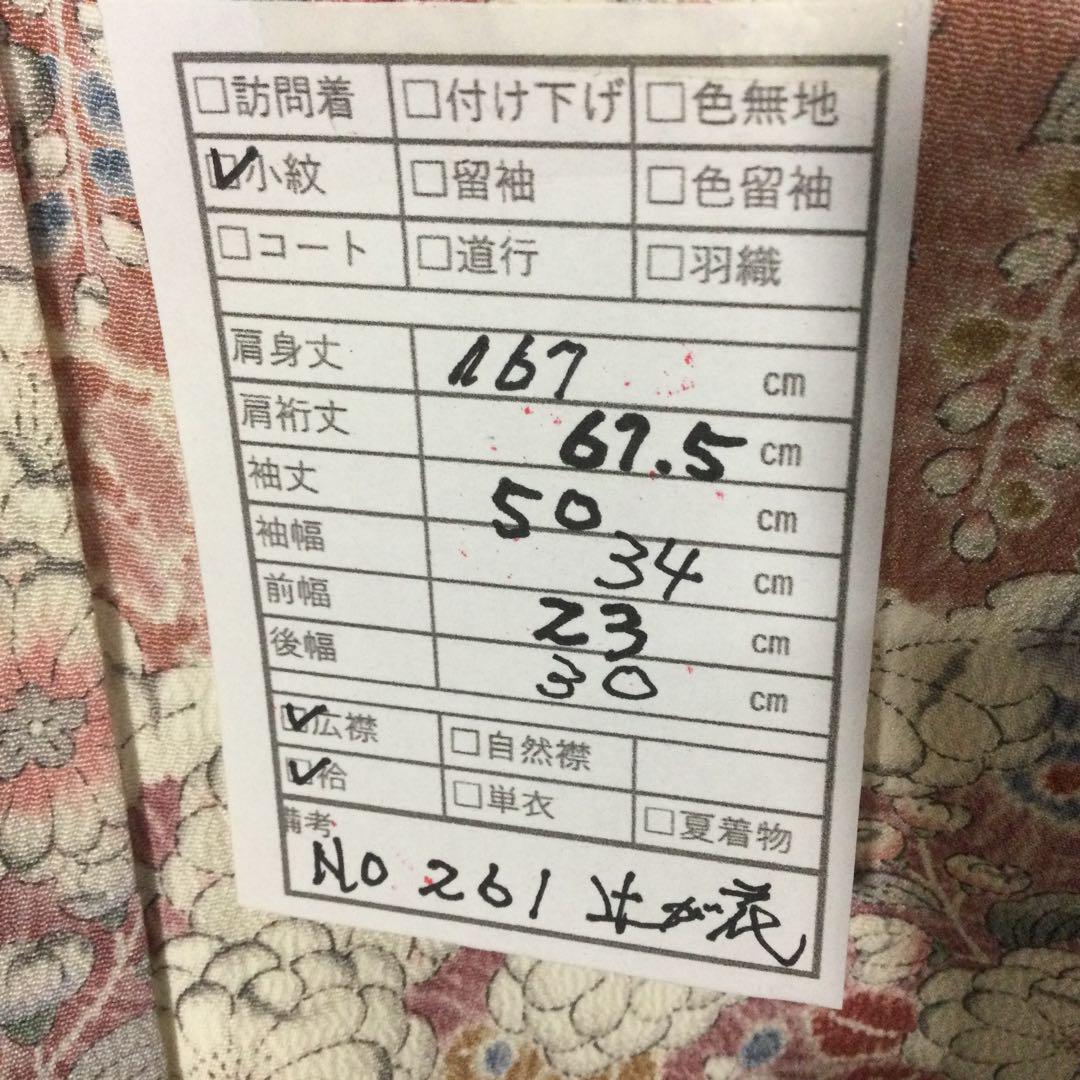 □訪問着 □付け下げ □色無地
☑小紋 □留袖 □色留袖
□コート □道行 □羽織
肩身丈 167 cm
肩裄丈 67.5 cm
袖丈 50 cm
袖幅 34 cm
前幅 23 cm
後幅 30 cm
☑広襟 □自然襟
☑袷 □単衣 □夏着物
備考
NO 261 辻が花